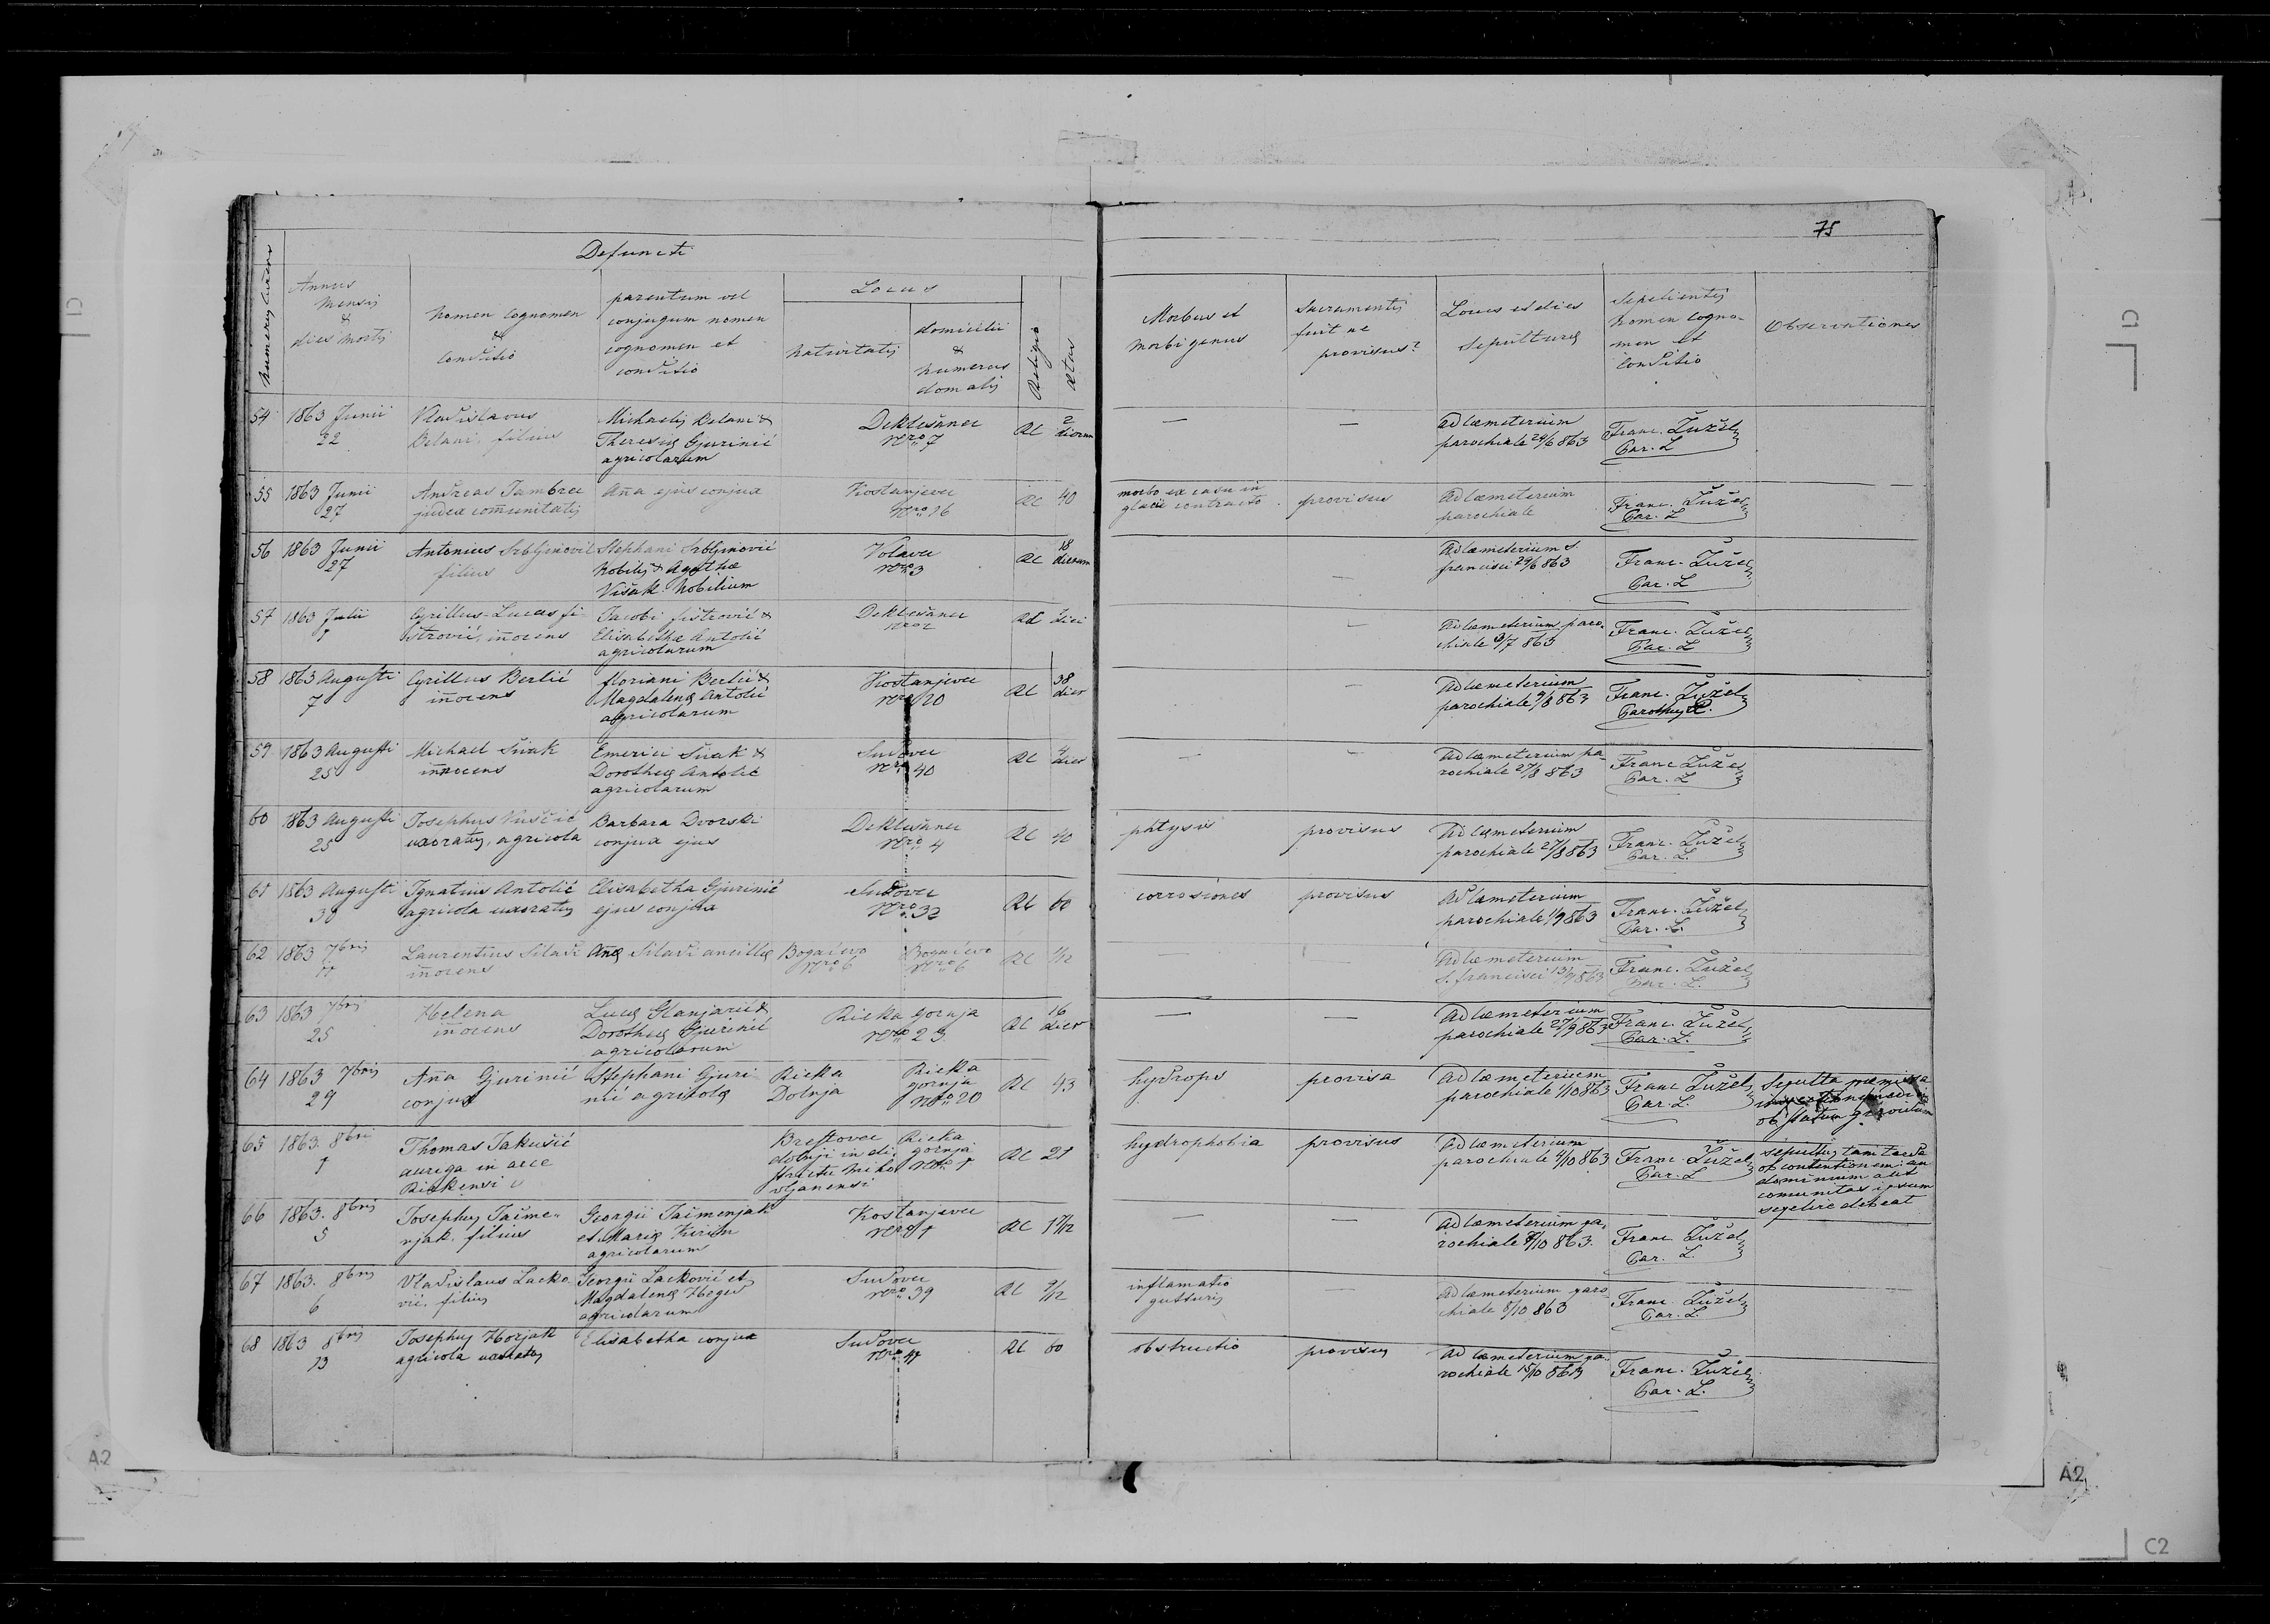 75
Defuncti
Numerus currens
Annus
Mensis
&
dies mortis
Nomen Cognomen
&
Conditio
parentum vel
conjugum nomen
cognomen et
conditio
Locus
Nativitatis
domicilii
&
numerus
domalis
Religio
Ætas
Morbus et
morbi genus
Sacramentis
fuit ne
provisus?
Locus et dies
sepulturæ
Sepelientis
Nomen Cogno-
men et
Conditio
Observationes
54 1863 Junii
22
Vladislavus
Belani, filius
Michaelis Belani &
Theresiæ Gjurinić
agricolarum
Deklešanec
Nro 7
RC
2
dierum
—
—
Ad cœmeterium
parochiale 24/6 863
Franc. Žužel
Par. L
55 1863 Junii
27
Andreas Jambrec
judex com̄unitatis
An̄a ejus conjux
Kostanjevec
Nro 16
RC 40
morbo ex casu in
glacie contracto
provisus
Ad cœmeterium
parochiale
Franc. Žužel
Par. L
56 1863 Junii
27
Antonius Srbljinović
filius
Stephani Srbljinović
Nobilis & Agathæ
Višak Nobilium
Volavec
Nro 3
RC
18
dierum
—
Ad cœmeterium S.
Francisci 29/6 863
Franc. Žužel
Par. L
57 1863 Julii
1
Cyrillus-Lucas fi
štrović, in̄ocens
Jacobi fištrović &
Elisabethæ Antolić
agricolarum
Deklešanec
Nro 2
RC diei
—
Ad cœmeterium paro-
chiale 3/7 863
Franc. Žužel
Par. L
58 1863 Augusti
7
Cyrillus Berlić
in̄ocens
Floriani Berlić &
Magdalenæ Antolić
agricolarum
Kostanjevec
Nro 20
RC
38
dier
—
Ad cœmeterium
parochiale 9/8 863
Franc. Žužel
Parochus L.
59 1863 Augusti
25
Michael Švak
innocens
Emerici Švak &
Dorotheæ Antolić
agricolarum
Sudovec
Nro 40
RC
4
dier
—
—
Ad cœmeterium pa-
rochiale 27/8 863
Franc Žužel
Par. L
60 1863 Augusti
25
Josephus Vuščić
uxoratus, agricola
Barbara Dvorski
conjux ejus
Deklešanec
Nro 4
RC 40
phtysis
provisus
Ad cœmeterium
parochiale 27/8 863
Franc. Žužel
Par. L.
61 1863 Augusti
30
Ignatius Antolić
agricola uxoratus
Elisabetha Gjurinić
ejus conjux
Sudovec
Nro 32
RC 60
corrosiones
provisus
Ad cœmeterium
parochiale 1/9 863
Franc. Žužel
Par. L.
62 1863 7bris
11
Laurentius Siladi
in̄ocens
An̄æ Siladi ancillæ
Bogačevo
Nro 6
Bogačevo
Nro 6
RC 1/12
—
—
Ad cœmeterium
S. Francisci 13/9 863
Franc. Žužel
Par. L.
63 1863 7bris
25
Helena
in̄ocens
Lucæ Glanjarić &
Dorotheæ Gjurinić
agricolarum
Rieka Gornja
Nro 23
RC
16
dier
—
—
Ad cœmeterium
parochiale 27/9 863
Franc. Žužel
Par. L.
64 1863 7bris
29
An̄a Gjurinić
conjux
Stephani Gjuri
nić agricolæ
Rieka
Dolnja
Rieka
gornja
Nro 20
RC 43
hydrops
provisa
Ad cœmeterium
parochiale 1/10 863
Franc Žužel
Par. L.
Sepulta præmissa
ob statum gravidum
65 1863. 8bris
1
Thomas Jakušić
auriga in arce
Riekensi
Brestovec
dolnji in di-
strictu Miho
vljanensi
Rieka
gornja
Nro 1
RC 21
hydrophobia
provisus
Ad cœmeterium
parochiale 4/10 863
Franc. Žužel
Par. L
Sepultus tam tarde
ob contentionem: an
dominium aut
comunitas ipsum
sepelire debeat
66 1863. 8bris
5
Josephus Jačme-
njak. filius
Georgii Jačmenjak
et Mariæ Kirin
agricolarum
Kostanjevec
Nro 1
RC
—
—
Ad cœmeterium pa-
rochiale 7/10 863.
Franc Žužel
Par. L.
67 1863. 8bris
6
Vladislaus Lacko
vić, filius
Georgii Lacković et
Magdalenæ Heged
agricolarum
Sudovec
Nro 39
RC 9/12
inflamatio
gutturis
—
Ad cœmeterium paro-
chiale 8/10 863
Franc. Žužel
Par. L.
68 1863 8bris
13
Josephus Horjak
agricola uxoratus
Elisabetha conjux
Sudovec
Nro 41
RC 60
obstructio
provisus
Ad cœmeterium pa-
rochiale 15/10 863
Franc. Žužel
Par. L.
C1
C1
A2
A2
C2